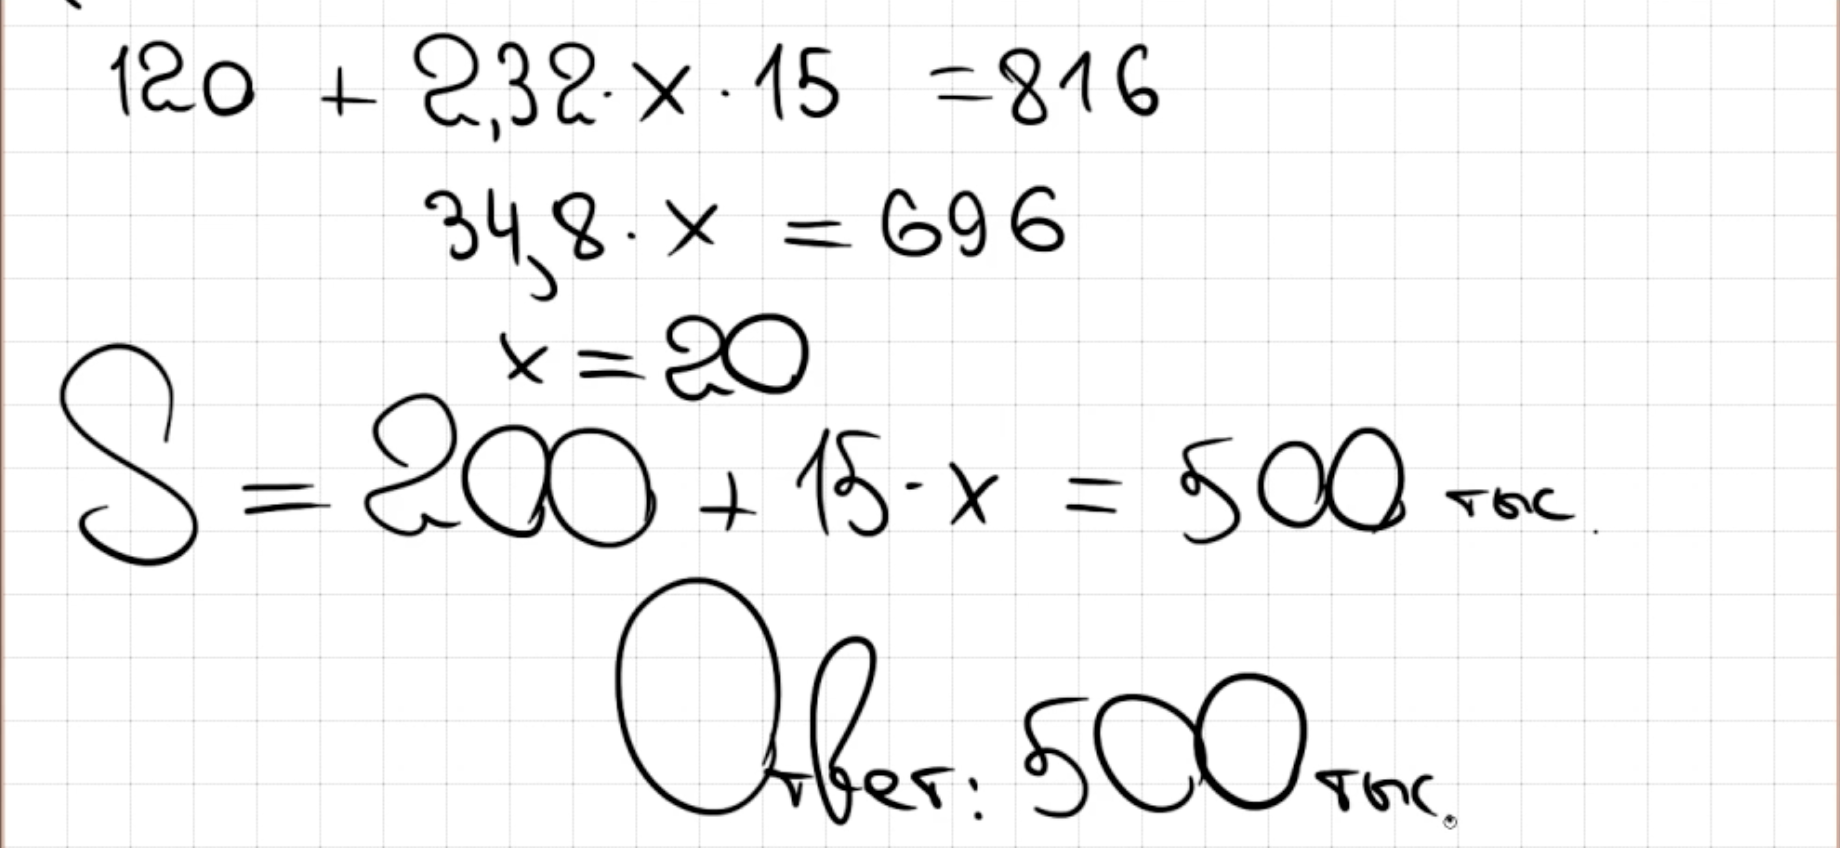 120 + 2,32 · x · 15 = 816
34,8 · x = 696
x = 20
S = 200 + 15 · x = 500 тыс.
Ответ: 500 тыс.